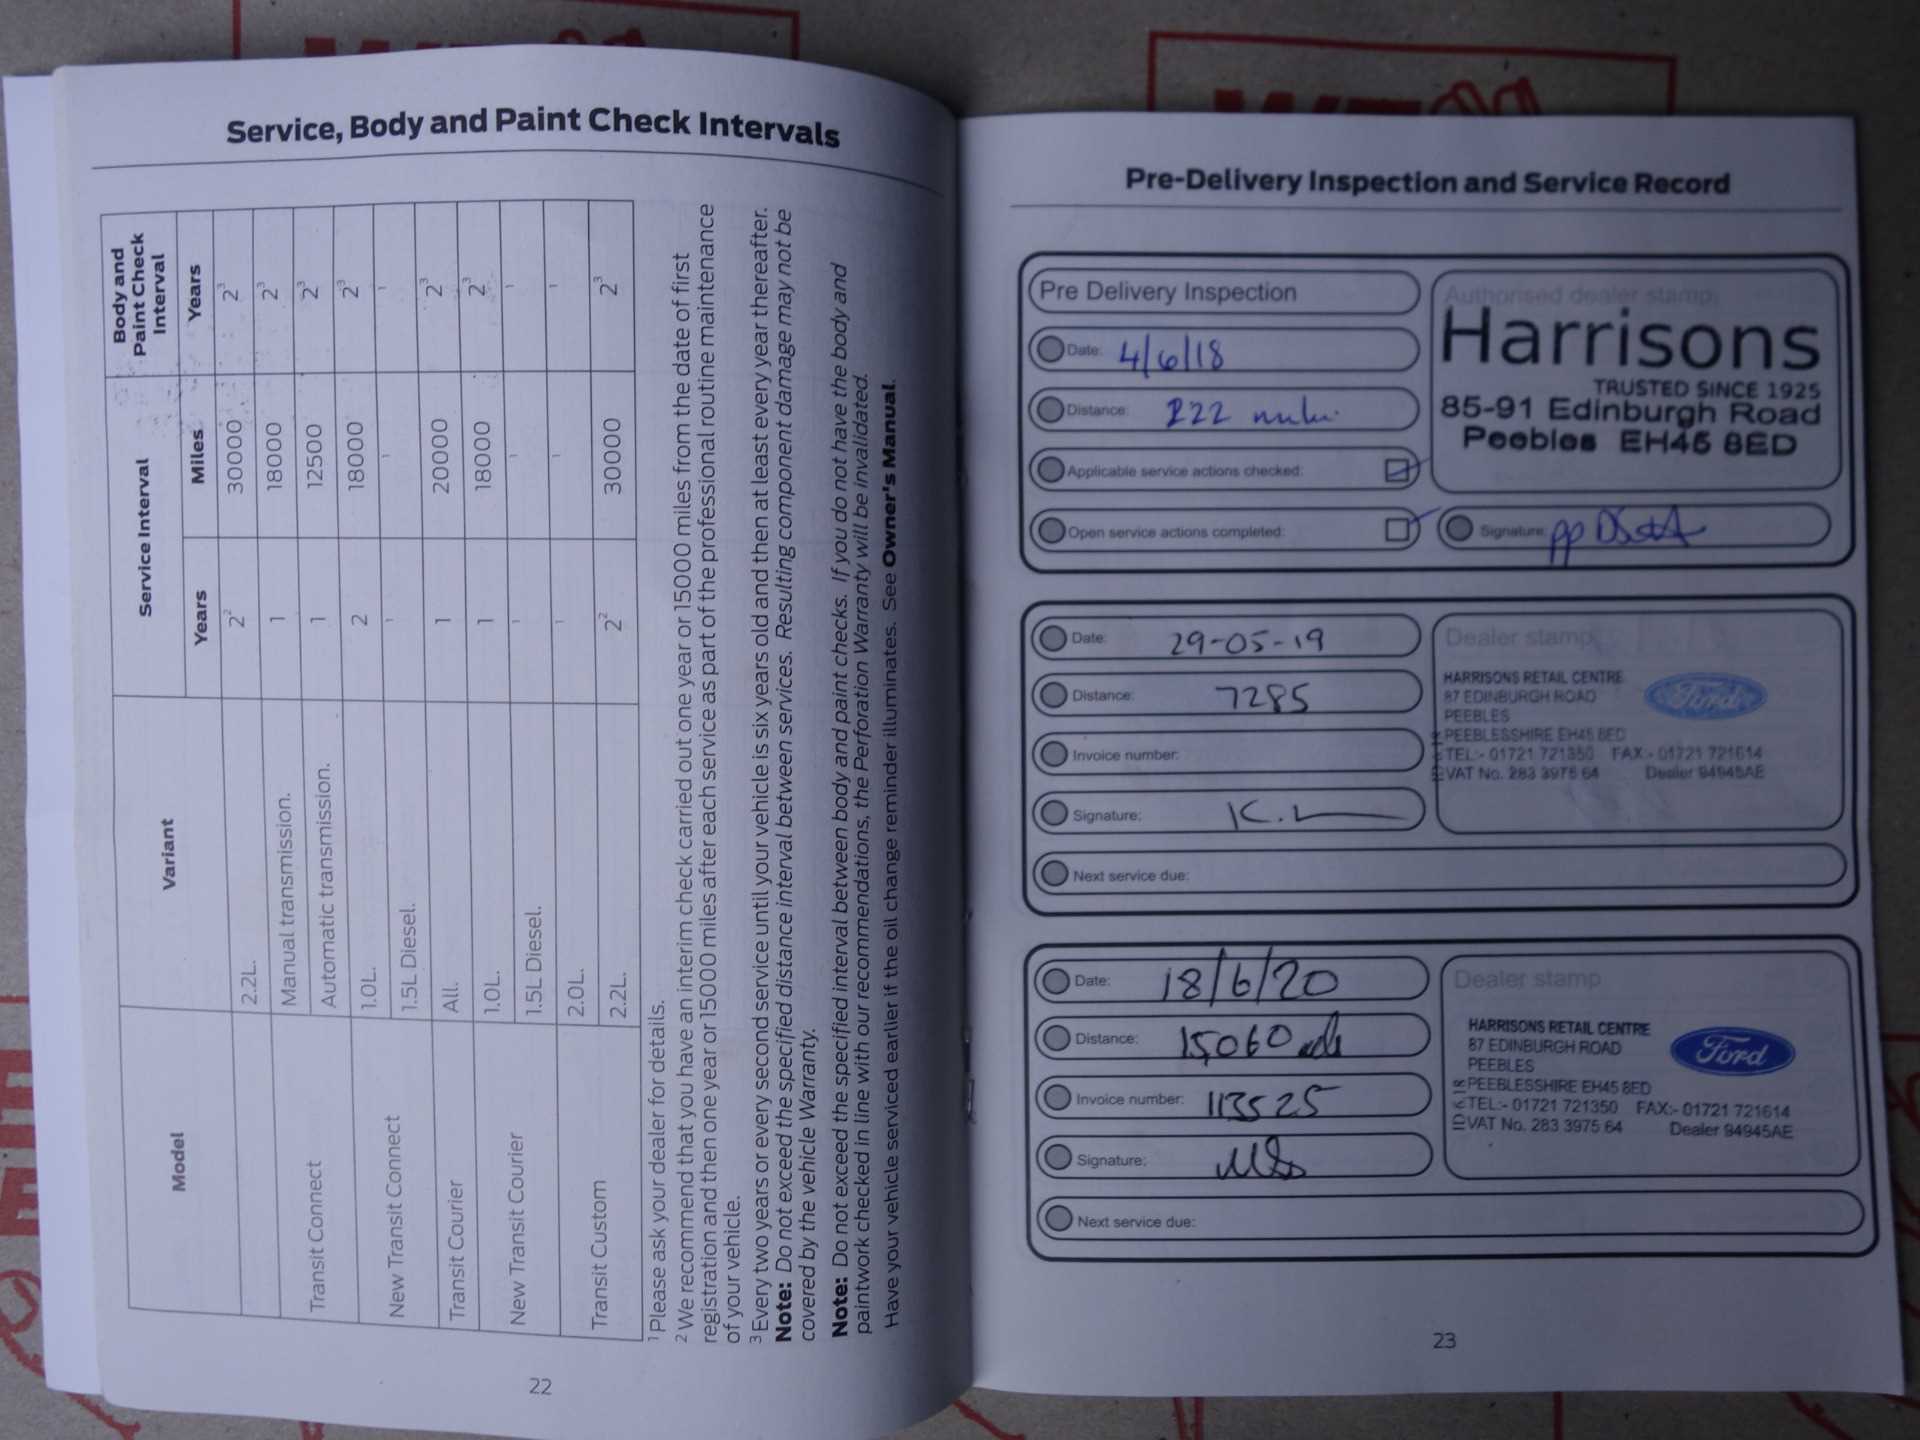 Service, Body and Paint Check Intervals
Model
Variant
Service Interval
Body and
Paint Check
Interval
Years
Miles
Years
2.2L.
2²
30000
2³
Transit Connect
Manual transmission.
1
18000
2³
Automatic transmission.
1
12500
2³
New Transit Connect
1.0L.
2
18000
2³
1.5L Diesel.
1
1
1
Transit Courier
All.
1
20000
2³
New Transit Courier
1.0L.
1
18000
2³
1.5L Diesel.
1
1
1
Transit Custom
2.0L.
1
1
1
2.2L.
2²
30000
2³
¹ Please ask your dealer for details.
² We recommend that you have an interim check carried out one year or 15000 miles from the date of first
registration and then one year or 15000 miles after each service as part of the professional routine maintenance
of your vehicle.
³ Every two years or every second service until your vehicle is six years old and then at least every year thereafter.
Note: Do not exceed the specified distance interval between services. Resulting component damage may not be
covered by the vehicle Warranty.
Note: Do not exceed the specified interval between body and paint checks. If you do not have the body and
paintwork checked in line with our recommendations, the Perforation Warranty will be invalidated.
Have your vehicle serviced earlier if the oil change reminder illuminates. See Owner's Manual.
22
Pre-Delivery Inspection and Service Record
Pre Delivery Inspection
Date: 4/6/18
Distance: 222
Applicable service actions checked:
Open service actions completed:
Authorised dealer stamp:
Harrisons
TRUSTED SINCE 1925
85-91 Edinburgh Road
Peebles EH45 8ED
Signature: pp
Date: 29-05-19
Distance: 7285
Invoice number:
Signature: K.
Next service due:
Dealer stamp
HARRISONS RETAIL CENTRE
87 EDINBURGH ROAD
PEEBLES
PEEBLESSHIRE EH45 8ED
TEL:- 01721 721350 FAX:- 01721 721614
VAT No. 283 3975 64 Dealer 94945AE
Ford
Date: 18/6/20
Distance: 15060
Invoice number: 113525
Signature:
Next service due:
Dealer stamp
HARRISONS RETAIL CENTRE
87 EDINBURGH ROAD
PEEBLES
PEEBLESSHIRE EH45 8ED
TEL:- 01721 721350 FAX:- 01721 721614
VAT No. 283 3975 64 Dealer 94945AE
Ford
23